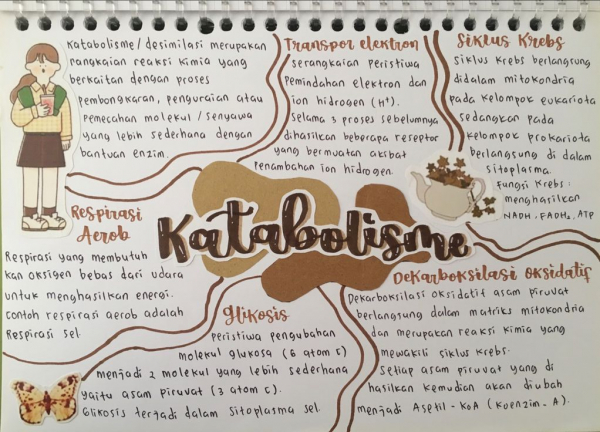 Katabolisme/desimilasi merupakan
rangkaian reaksi kimia yang
berkaitan dengan proses
pembongkaran, penguraian atau
pemecahan molekul/senyawa
yang lebih sederhana dengan
bantuan enzim.
Transpor elektron
serangkaian peristiwa
Pemindahan elektron dan
ion hidrogen (H⁺).
selama 3 proses sebelumnya
dihasilkan beberapa reseptor
yang bermuatan akibat
Penambahan ion hidrogen.
Siklus Krebs
siklus krebs berlangsung
didalam mitokondria
pada kelompok eukariota
sedangkan pada
kelompok prokariota
berlangsung di dalam
sitoplasma.
fungsi krebs:
menghasilkan
NADH, FADH₂, ATP
Katabolisme
Respirasi
Aerob
Respirasi yang membutuh
kan oksigen bebas dari udara
untuk menghasilkan energi.
contoh respirasi aerob adalah
Respirasi sel.
Glikosis
Peristiwa pengubahan
molekul glukosa (6 atom C)
menjadi 2 molekul yang lebih sederhana
yaitu asam piruvat (3 atom C).
Glikosis terjadi dalam sitoplasma sel.
Dekarboksilasi Oksidatif
Dekarboksilasi oksidatif asam piruvat
berlangsung dalam matriks mitokondria
dan merupakan reaksi kimia yang
mewakili siklus krebs.
Setiap asam piruvat yang di
hasilkan kemudian akan diubah
menjadi Asetil-KoA (koenzim-A).